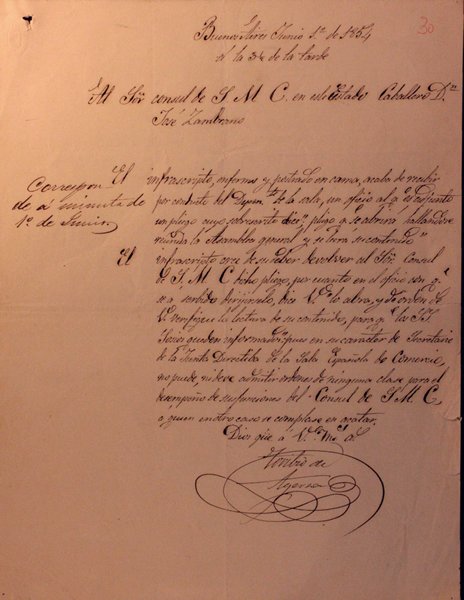 30
Buenos Aires Junio 1º. de 1854
a las 3¼ de la tarde
Al Sõr consul de S. M. C. en este Estado Caballero Dn
José Zambrano
Correspon
de a minuta de
1º de Junio
El infrascripto, enfermo y postrado en cama, acaba de recibir
por conducto del de la sala, un oficio al q. es adjunto
un pliego cuyo sobrescrito dice, pliego q. se abrira hallandose
reunida la Asamblea general y se lera su contenido
El infrascripto cree de su deber devolver al Sõr Consul
de S. M. C. dicho pliego, por cuanto en el oficio con q.
se a servido dirijirselo, dice V. lo abra, y de orden de
V. verifique la lectura de su contenido, para q. los S.S.
Socios queden informados, pues en su caracter de Secretario
de la Junta Directiva de la Sala Española de Comercio,
no puede, ni deve admitir ordenes de ninguna clase para el
desempeño de sus funciones del Consul de S. M. C.
a quien en otro caso se complace en acatar.
Dios gue. a V. ms. as.
Toribio de
Ayerza